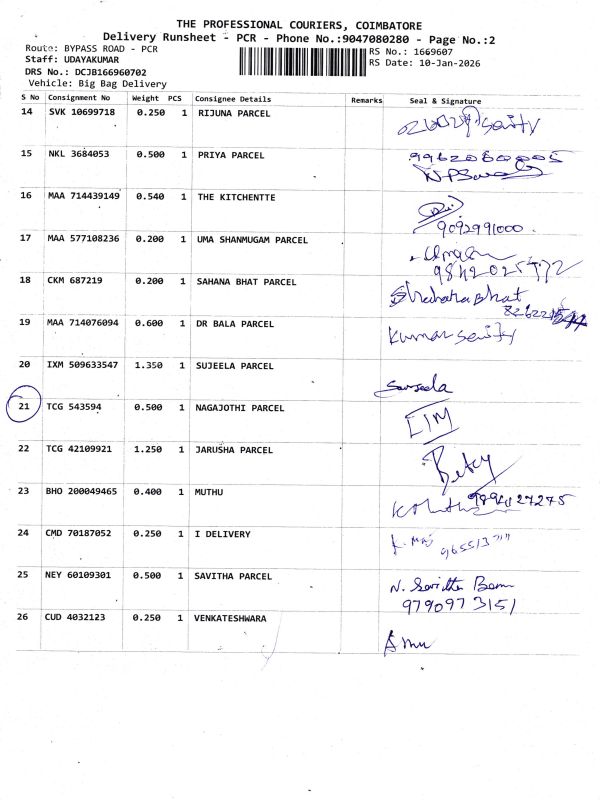 THE PROFESSIONAL COURIERS, COIMBATORE
Delivery Runsheet - PCR - Phone No.:9047080280 - Page No.:2
Route: BYPASS ROAD - PCR
RS No.: 1669607
Staff: UDAYAKUMAR
RS Date: 10-Jan-2026
DRS No.: DCJB166960702
Vehicle: Big Bag Delivery
S No Consignment No Weight PCS Consignee Details Remarks Seal & Signature
14 SVK 10699718 0.250 1 RIJUNA PARCEL
15 NKL 3684053 0.500 1 PRIYA PARCEL
16 MAA 714439149 0.540 1 THE KITCHENTTE
9092991000
17 MAA 577108236 0.200 1 UMA SHANMUGAM PARCEL
Uma
18 CKM 687219 0.200 1 SAHANA BHAT PARCEL
Bhat
19 MAA 714076094 0.600 1 DR BALA PARCEL
Kumar
20 IXM 509633547 1.350 1 SUJEELA PARCEL
21 TCG 543594 0.500 1 NAGAJOTHI PARCEL
22 TCG 42109921 1.250 1 JARUSHA PARCEL
23 BHO 200049465 0.400 1 MUTHU
24 CMD 70187052 0.250 1 I DELIVERY
25 NEY 60109301 0.500 1 SAVITHA PARCEL
N. Savitha
9790973151
26 CUD 4032123 0.250 1 VENKATESHWARA